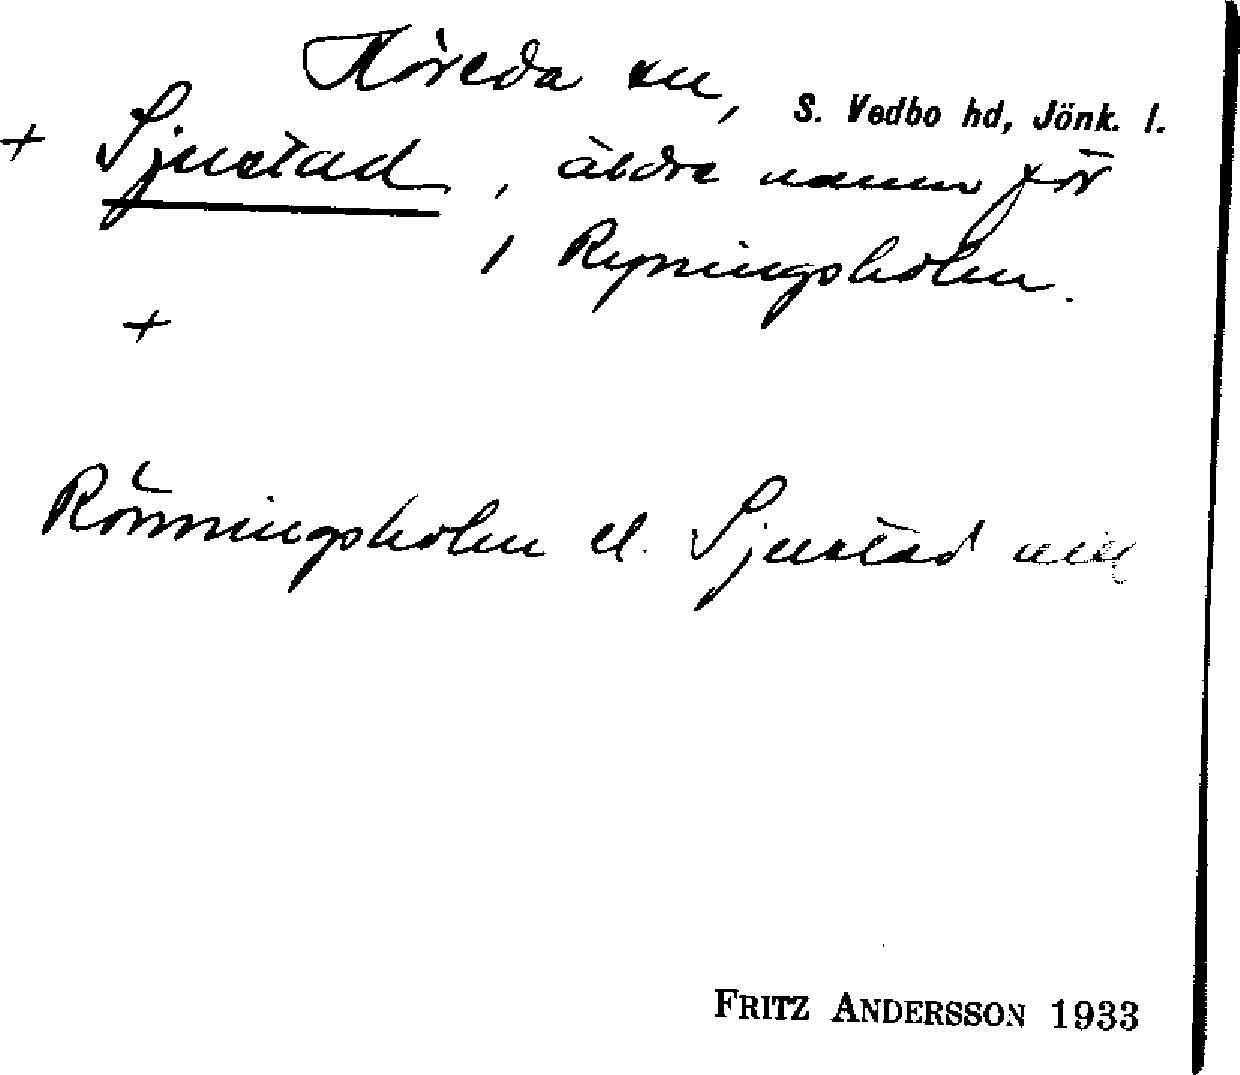 Höreda sn, S. Vedbo hd, Jönk. l.
+ Sjustad, äldre namn för
/ Ryningsholm.
+
Rönningsholm el. Sjustad
FRITZ ANDERSSON 1933